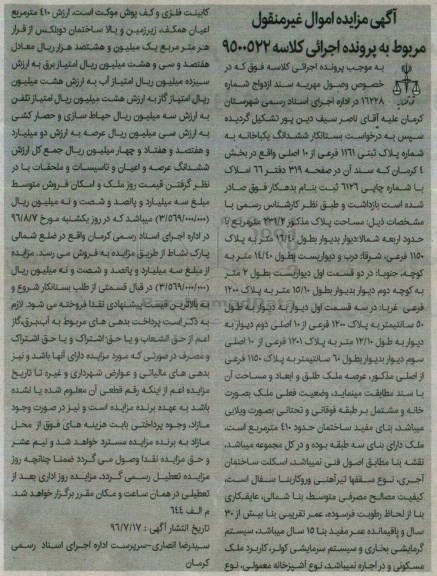 آگهی مزایده اموال غیرمنقول
مربوط به پرونده اجرائی کلاسه ۹۵۰۰۵۲۲
به موجب پرونده اجرائی کلاسه فوق که در
خصوص وصول مهریه سند ازدواج شماره
۱۶۲۲۸ در اداره اجرای اسناد رسمی شهرستان
کرمان علیه آقای ناصر سیف دین پور تشکیل گردیده
سپس به درخواست بستانکار ششدانگ یکبابخانه به
شماره پلاک ثبتی ۱۱۶۱ فرعی از ۱۰ اصلی واقع در بخش
۴ کرمان که سند آن در صفحه ۳۱۹ دفتر ۶۶ املاک
با شماره چاپی ۶۱۲۶ ثبت بنام بدهکار فوق صادر
شده است بازداشت و طبق نظر کارشناس رسمی با
مشخصات ذیل: مساحت پلاک مذکور ۲۳۶/۲ مترمربع با
حدود اربعه شمالا: دیوار بدیوار بطول ۱۶/۴۰ متر به پلاک
۱۱۵۰ فرعی، شرقا: درب و دیواریست بطول ۱۴/۴۰ متر به
کوچه، جنوبا: در دو قسمت اول دیواریست بطول ۲ متر
به کوچه دوم دیوار بدیوار بطول ۱۵/۱۰ متر به پلاک ۱۲۰۰
فرعی غربا: در سه قسمت اول دیوار به دیوار به طول
۵۰ سانتیمتر به پلاک ۱۲۰۰ فرعی از ۱۰ اصلی دوم دیوار به
دیوار به طول ۱۲/۱۰ متر به پلاک ۱۲۰۱ فرعی از ۱۰ اصلی
سوم دیوار بدیوار بطول ۶۰ سانتیمتر به پلاک ۱۱۵۰ فرعی
از اصلی مذکور، عرصه ملک طلق و ابعاد و مساحت آن
با سند مطابقت مینماید، وضعیت فعلی ملک بصورت
خانه و مشتمل بر طبقه فوقانی و تحتانی بصورت ویلایی
میباشد، بنای مفید ساختمان حدود ۴۱۰ مترمربع است،
ملک دارای بنای سه طبقه بوده و در کل مجموعه میباشد،
نقشه بنا مطابق اصول فنی نمیباشد، اسکلت ساختمان
آجری، نوع سقفها تیرآهنی و روکاربنا سفال است،
کیفیت مصالح مصرفی متوسط، بنا شمالی، عایقکاری
بنا از لحاظ رطوبت فرسوده، عمر تقریبی بنا بیش از ۳۰
سال و باقیمانده عمر مفید بنا ۱۵ سال میباشد، سیستم
گرمایشی بخاری و سیستم سرمایشی کولر، کاربرد ملک
مسکونی و در اجاره نمیباشد، نوع آشپزخانه معمولی، نوع
کابینت فلزی و کف پوش موکت است. ارزش ۴۱۰ مترمربع
اعیان همکف، زیرزمین و بالا ساختمان دوبلکس از قرار
هر متر مربع یک میلیون و هشتصد هزار ریال معادل
هفتصد و سی و هشت میلیون ریال امتیاز برق به ارزش
سیزده میلیون ریال امتیاز آب به ارزش هشت میلیون
ریال امتیاز گاز به ارزش هشت میلیون ریال امتیاز تلفن
به ارزش سه میلیون ریال حیاط سازی و حصار کشی
به ارزش سی میلیون ریال عرصه به ارزش دو میلیارد
و هفتصد و هفتاد و چهار میلیون ریال جمع کل ارزش
ششدانگ عرصه و اعیان و تاسیسات و ملحقات با در
نظر گرفتن قیمت روز ملک و امکان فروش متوسط
مبلغ سه میلیارد و پانصد و شصت و نه میلیون ریال
(۳/۵۶۹/۰۰۰/۰۰۰) میباشد که در روز یکشنبه مورخ ۹۶/۸/۷
در اداره اجرای اسناد رسمی کرمان واقع در ضلع شمالی
پارک نشاط از طریق مزایده به فروش می رسد. مزایده
از مبلغ سه میلیارد و پانصد و شصت و نه میلیون ریال
(۳/۵۶۹/۰۰۰/۰۰۰) در قبال قسمتی از طلب بستانکار شروع و
به بالاترین قیمت پیشنهادی نقدا فروخته می شود. لازم
به ذکر است پرداخت بدهی های مربوط به آب،برق،گاز
اعم از حق انشعاب و یا حق اشتراک و یا حق اشتراک
و مصرف در صورتی که مورد مزایده دارای آنها باشد و نیز
بدهی های مالیاتی و عوارض شهرداری و غیره تا تاریخ
مزایده اعم از اینکه رقم قطعی آن معلوم شده یا نشده
باشد به عهده برنده مزایده است و نیز در صورت وجود
مازاد، وجوه پرداختی بابت هزینه های فوق از محل
مازاد به برنده مزایده مسترد خواهد شد و نیم عشر
و حق مزایده نقدا وصول می گردد ضمنا چنانچه روز
مزایده تعطیل رسمی گردد، مزایده روز اداری بعد از
تعطیلی در همان ساعت و مکان مقرر برگزار خواهد شد.
م الف ۶۴۴
تاریخ انتشار آگهی: ۹۶/۷/۱۷
سیدرضا انصاری-سرپرست اداره اجرای اسناد رسمی
کرمان